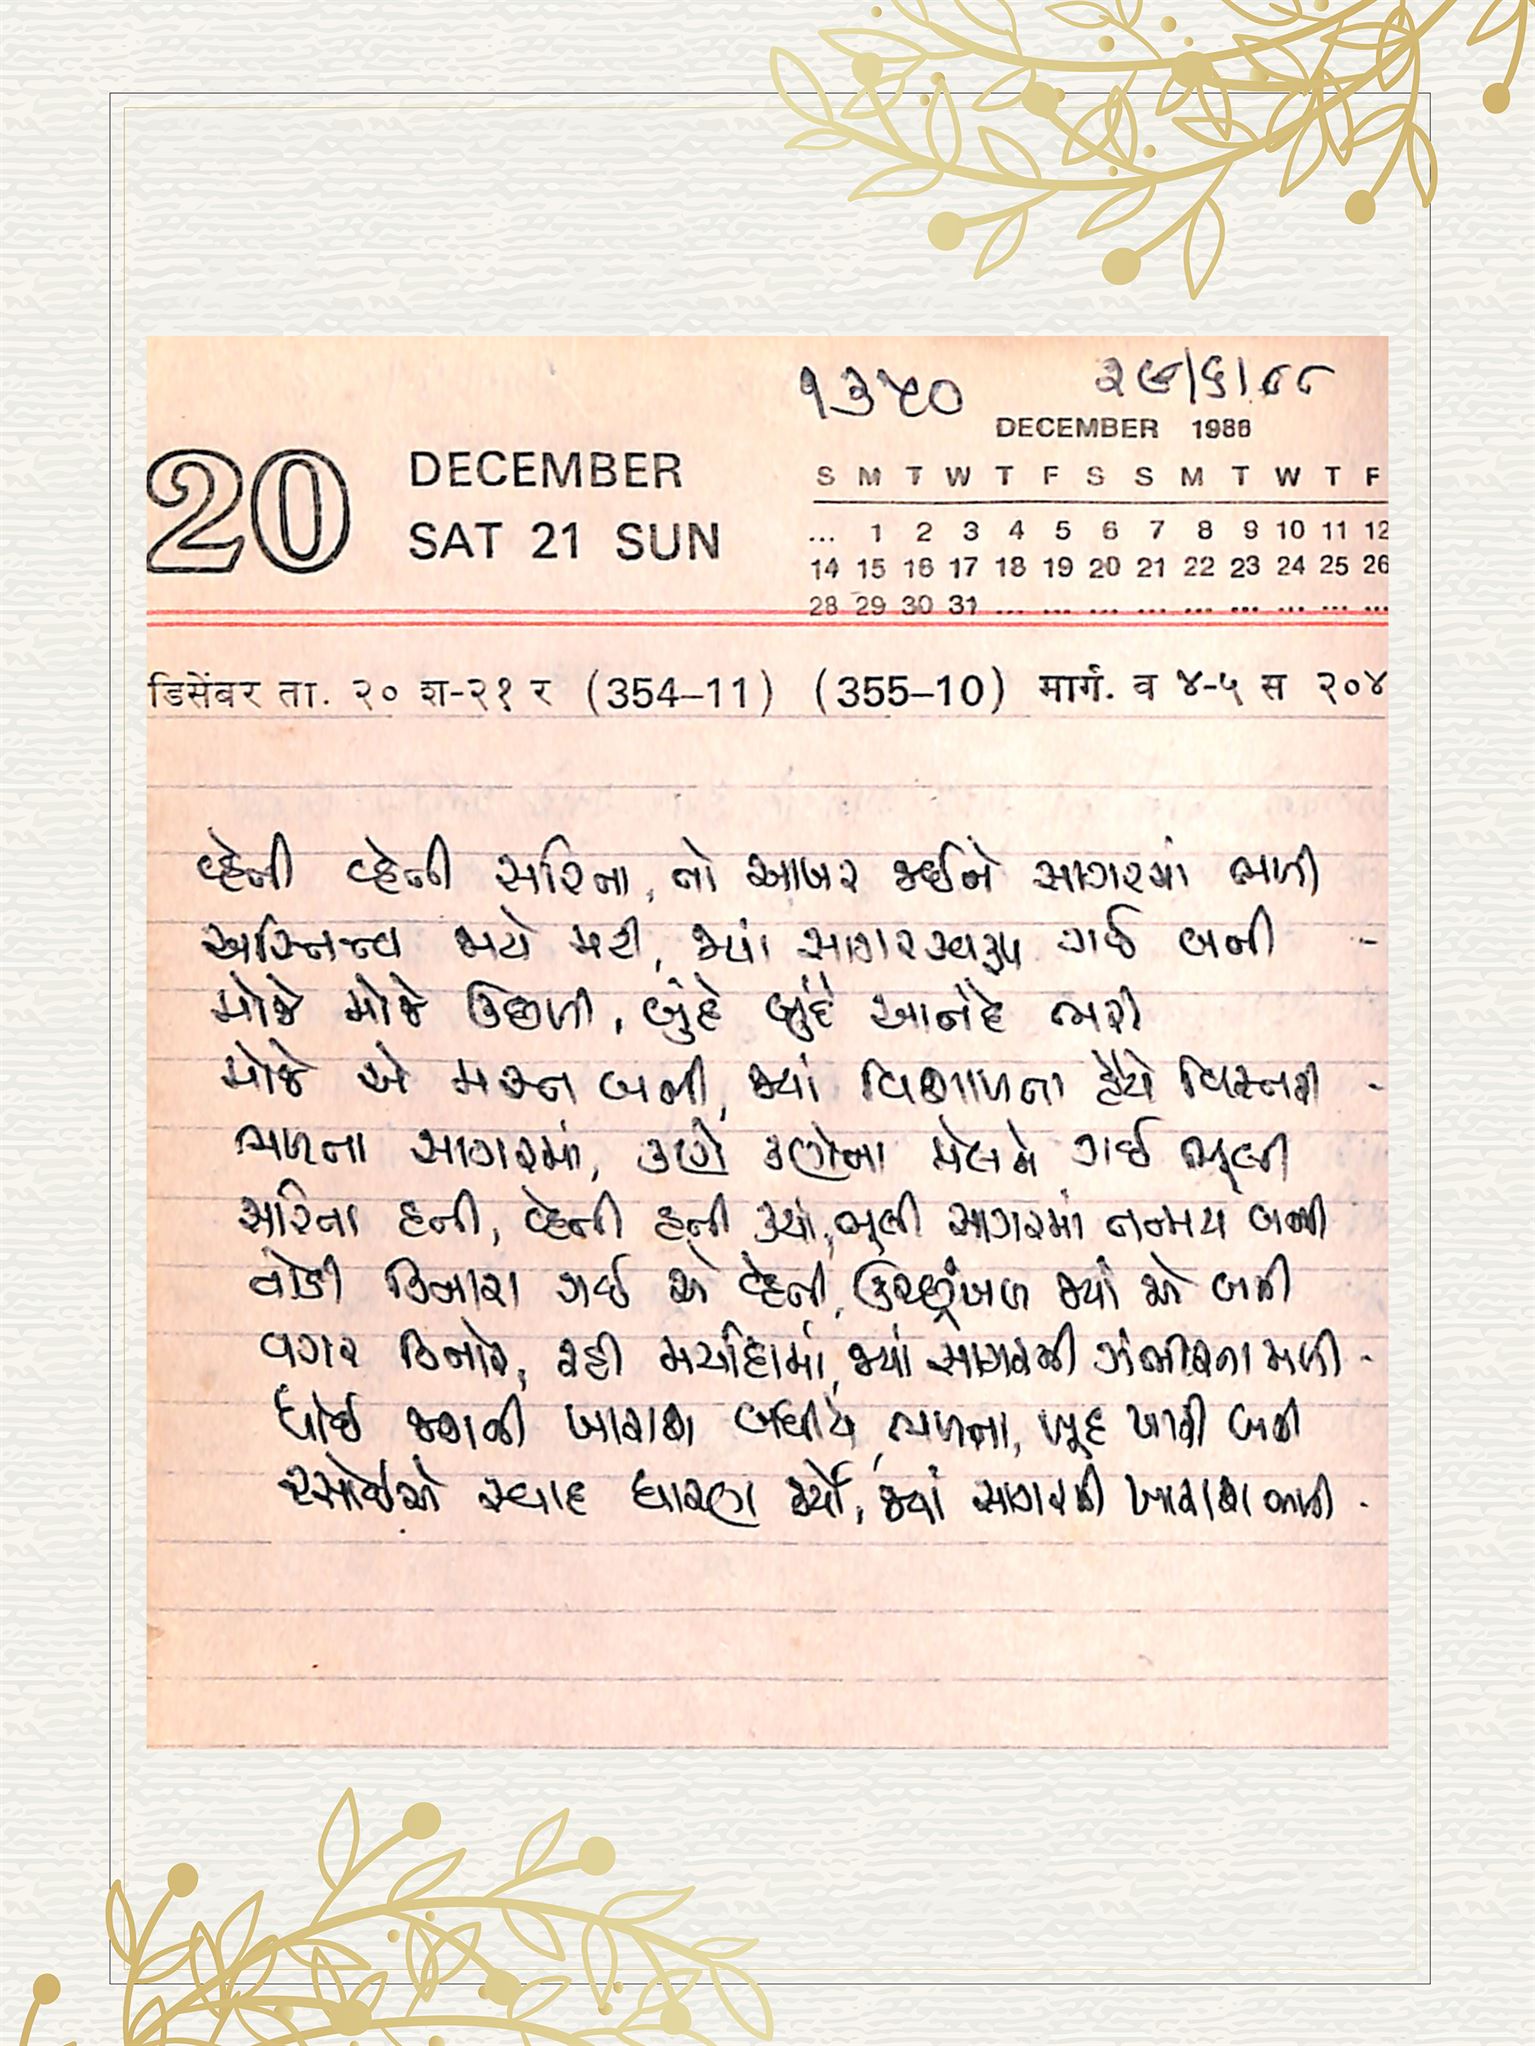 ૧૩૫૦ ૨૯/૬/૮૮
DECEMBER 1986
20 DECEMBER
SAT 21 SUN
S M T W T F S S M T W T F
... 1 2 3 4 5 6 7 8 9 10 11 12
14 15 16 17 18 19 20 21 22 23 24 25 26
28 29 30 31 ... ... ... ... ... ... ... ... ...
डिसेंबर ता. २० श-२१ र (354–11) (355–10) मार्ग. व ४-५ स २०४
વ્હેતી વ્હેતી સરિતા, તો આખર જઈને સાગરમાં ભળી
અસ્તિત્વ મટી, જ્યાં સાગરસ્વરૂપ ગઈ બની -
મોજે મોજે ઉછળી, બુંદે બુંદે આનંદે ભરી
મોજે એ મગ્ન બની, જ્યાં વિશાળતા હૈયે વિસ્તરી -
ભળતા સાગરમાં, કણે કણોના મેલને ગઈ ભૂલી
સરિતા હતી, વ્હેતી હતી ક્યાં, ભૂલી સાગરમાં તન્મય બની
તોડી કિનારા ગઈ એ વ્હેતી, ઉચ્છૃંખળ જ્યાં એ બની
વગર કિનારે, રહી મર્યાદામાં, જ્યાં સાગરની ગંભીરતા મળી -
ધોઈ જગની ખારાશ બધીયે, ભળતા, ખુદ ખારી બની
રસોઈએ સ્વાદ ધારણ કર્યો, જ્યાં સાગરની ખારાશ ભળી -